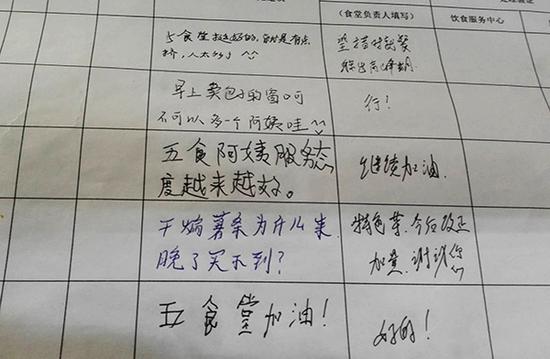 (食堂负责人填写)
饮食服务中心
5食堂挺好的,就是有点
挤,人太多了
早上卖包子的窗口
可不可以多一个阿姨哇
行!
五食阿姨服务态
度越来越好。
继续加油
干煸薯条为什么来
晚了买不到?
特色菜.今后改正
加量.谢谢你
五食堂加油!
好的!